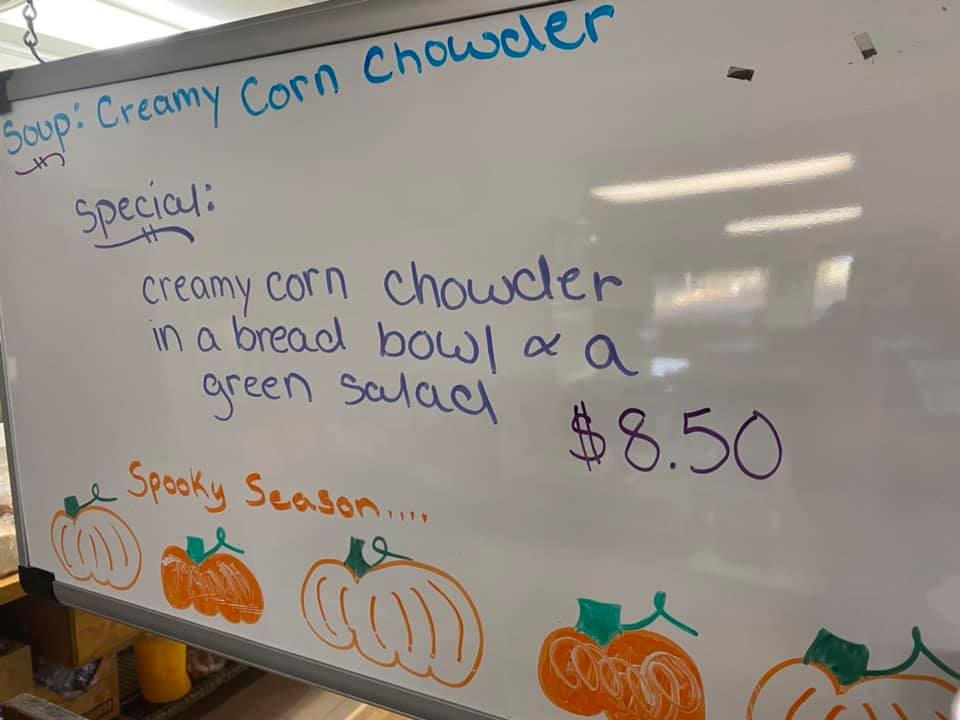 Soup: Creamy Corn Chowder
Special:
creamy corn chowder
in a bread bowl & a
green salad
$8.50
Spooky Season....